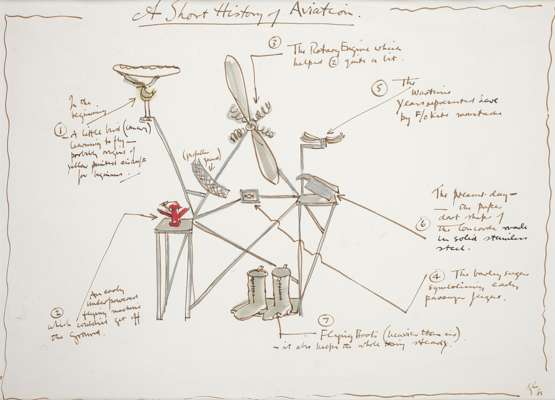 A Short History of Aviation.
③ The Rotary Engine which
helped ② quite a lot.
In the
beginning
① A little bird (canary)
learning to fly —
probably origins of
yellow painted
for beginners
(propeller
guard)
⑤ The
Wartime
Years represented here
by F/O Kite's moustache
The present day —
— the paper
dart shape of
⑥ the Concorde made
in solid stainless
steel.
④ The barley sugar
symbolising early
passenger
② An early
underpowered
flying machine
which couldn't get off
the ground.
⑦ Flying Boots (heavier than air)
— it also keeps the whole thing steady.